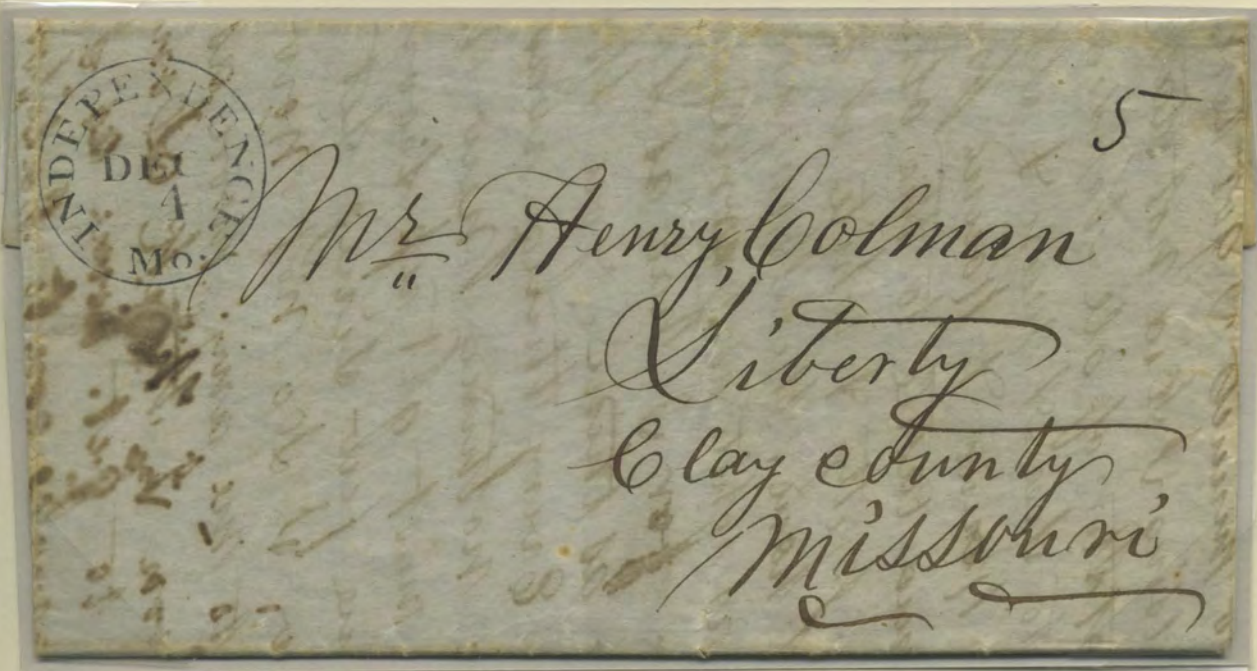 INDEPENDENCE
DEC
1
Mo.
5
Mr Henry Colman
Liberty
Clay county
Missouri